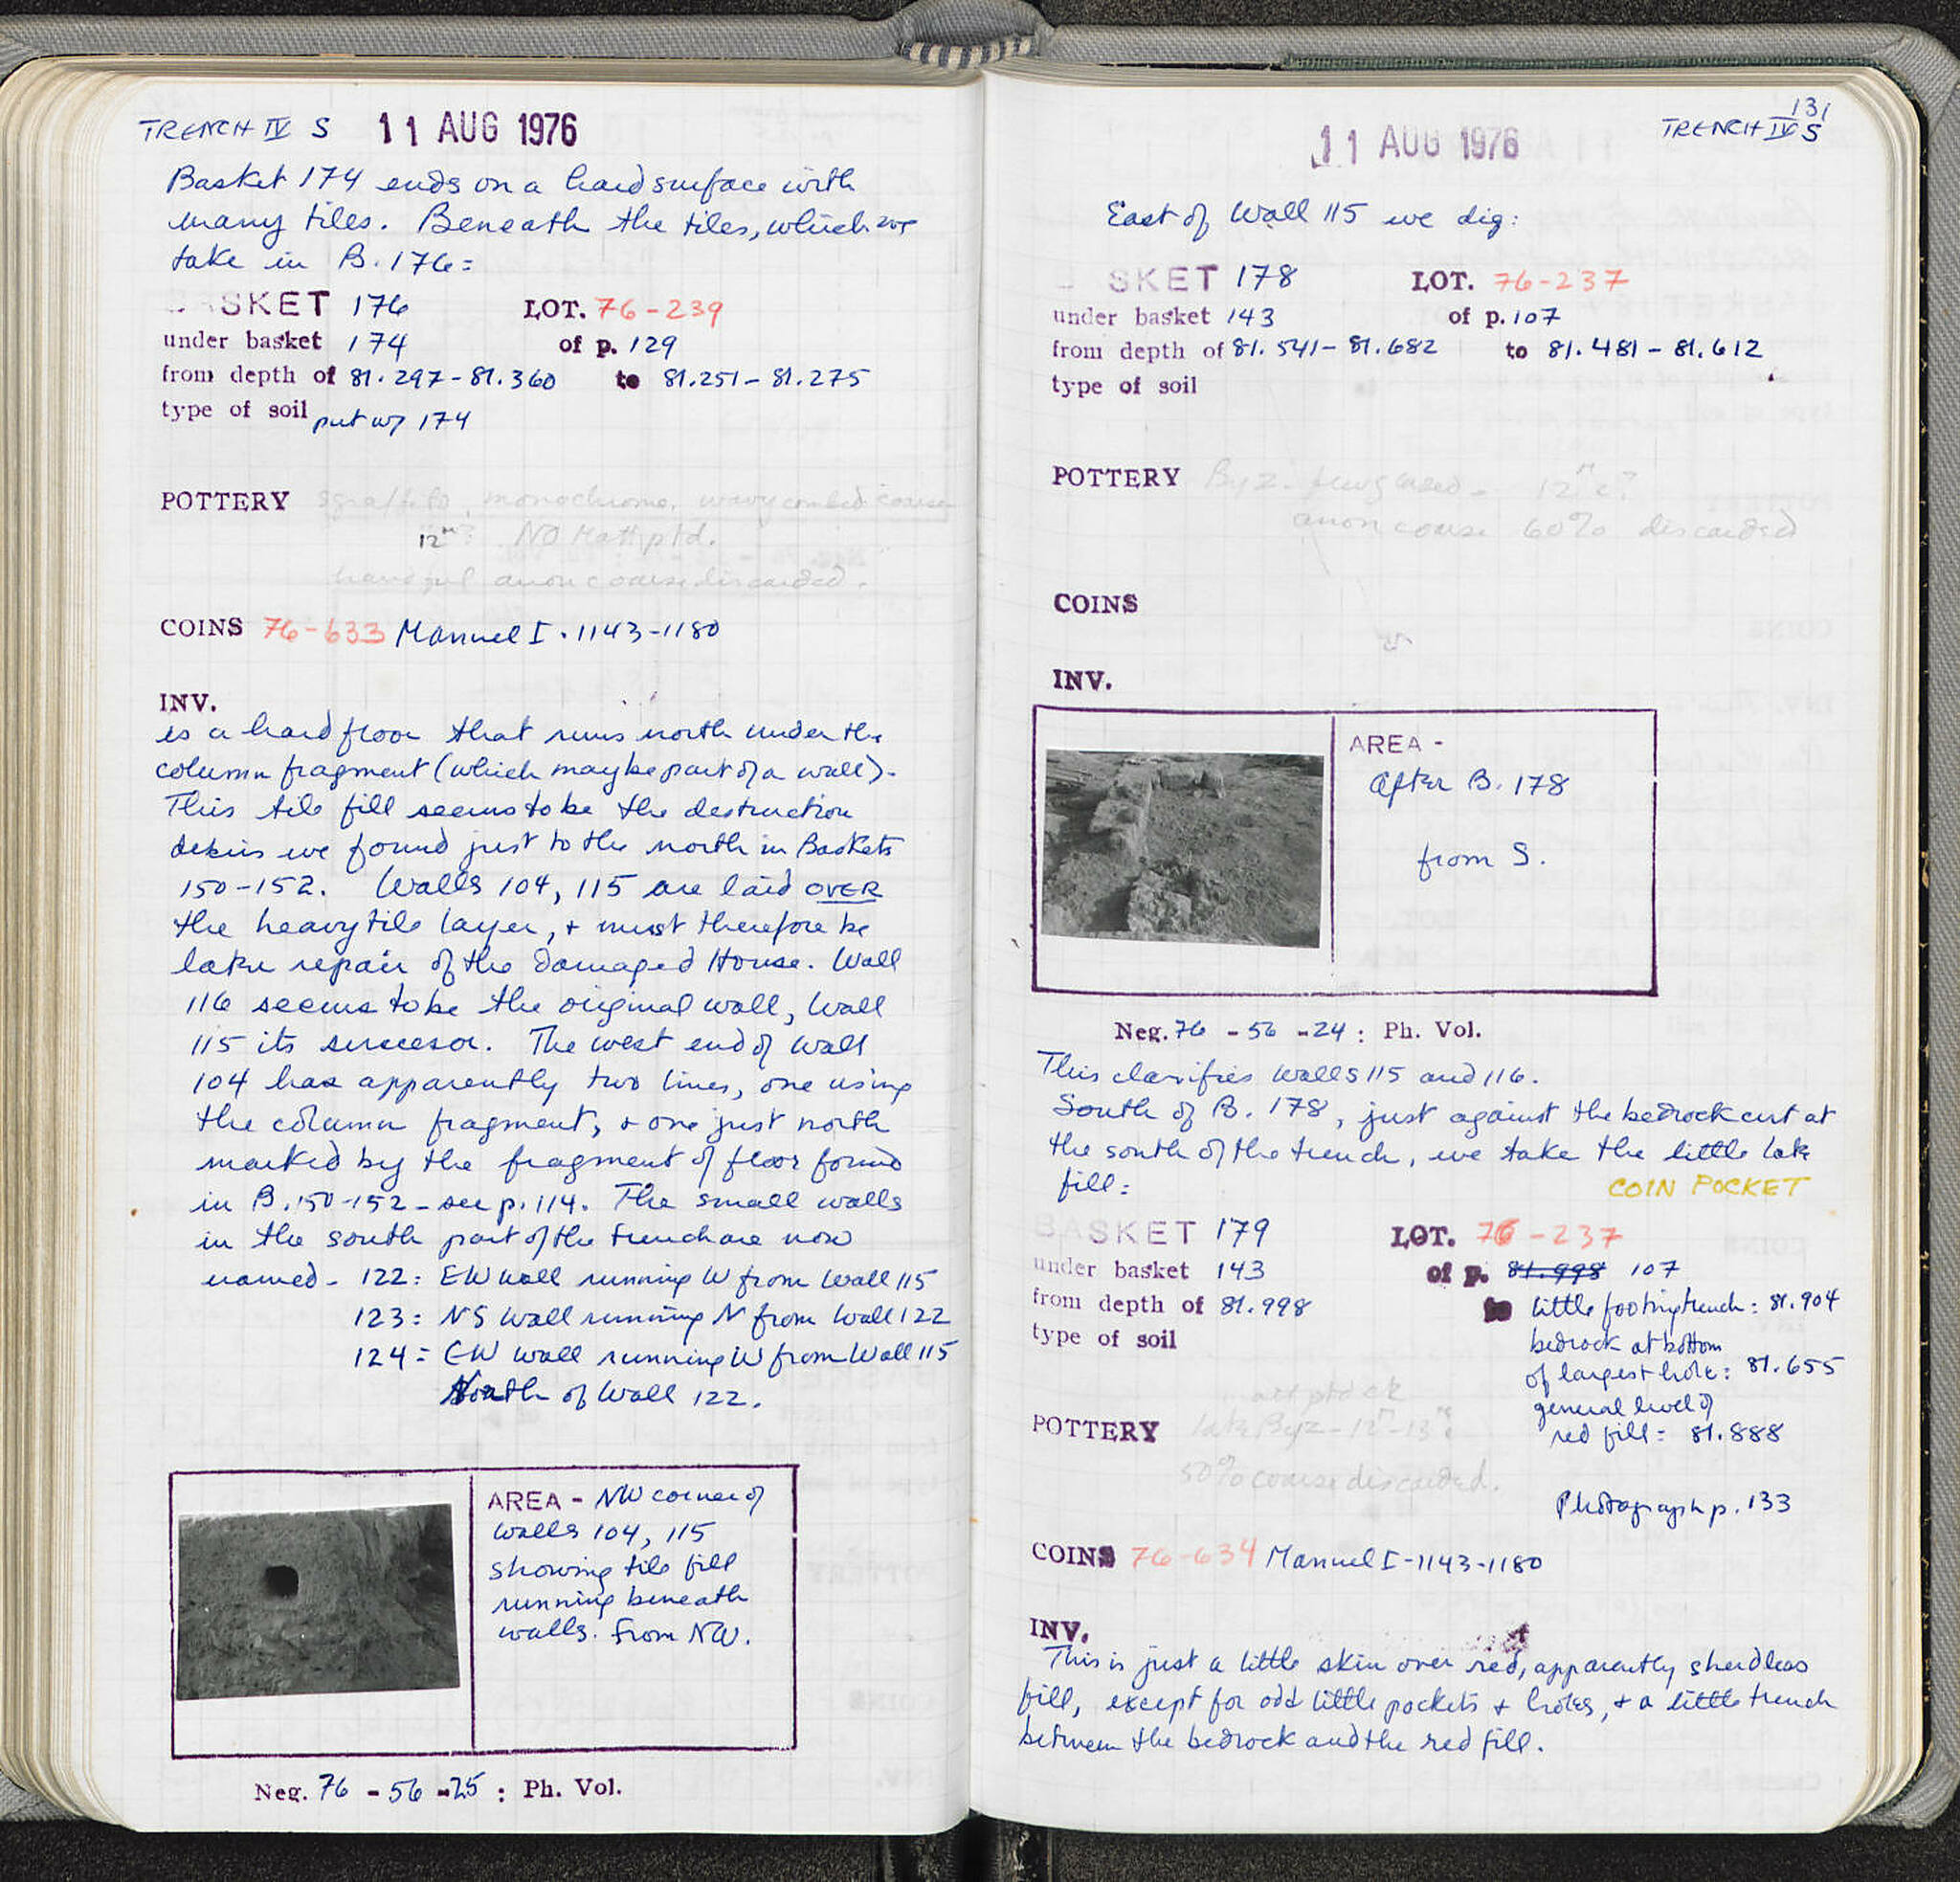 TRENCH IV S 11 AUG 1976
Basket 174 ends on a hard surface with
many tiles. Beneath the tiles, which we
take in B. 176:
BASKET 176 LOT. 76-239
under basket 174 of p. 129
from depth of 81.297-81.360 to 81.251-81.275
type of soil put w/ 174
POTTERY sgraffito, monochrome, wavy combed coarse
12th? NO Matt ptd.
handful anon coarse discarded.
COINS 76-633 Manuel I. 1143-1180
INV.
is a hard floor that runs north under the
column fragment (which may be part of a wall).
This tile fill seems to be the destruction
debris we found just to the north in Baskets
150-152. Walls 104, 115 are laid OVER
the heavy tile layer, + must therefore be
later repair of the Damaged House. Wall
116 seems to be the original wall, Wall
115 its succesor. The west end of Wall
104 has apparently two lines, one using
the column fragment, + one just north
marked by the fragment of floor found
in B. 150-152 - see p. 114. The small walls
in the south part of the trench are now
named - 122: EW wall running W from Wall 115
123: NS Wall running N from Wall 122
124: EW wall running W from Wall 115
of Wall 122.
AREA - NW corner of
walls 104, 115
showing tile fill
running beneath
walls. From NW.
Neg. 76 - 56 - 25 : Ph. Vol.
131
11 AUG 1976 TRENCH IV S
East of Wall 115 we dig:
BASKET 178 LOT. 76-237
under basket 143 of p. 107
from depth of 81.541-81.682 to 81.481-81.612
type of soil
POTTERY Byz. - 12th c?
anon coarse 60% discarded
COINS
INV.
AREA -
After B. 178
from S.
Neg. 76 - 56 - 24 : Ph. Vol.
This clarifies Walls 115 and 116.
South of B. 178, just against the bedrock cut at
the south of the trench, we take the little late
fill:
COIN POCKET
BASKET 179 LOT. 76-237
under basket 143 of p. 81.998 107
from depth of 81.998 to little footing trench: 81.904
type of soil bedrock at bottom
of largest hole: 81.655
general level of
red fill: 81.888
POTTERY late Byz - 12th-13th c
50% coarse discarded.
Photograph p. 133
COINS 76-634 Manuel I - 1143-1180
INV.
This is just a little skin over red, apparently sherdless
fill, except for odd little pockets + holes, + a little trench
between the bedrock and the red fill.